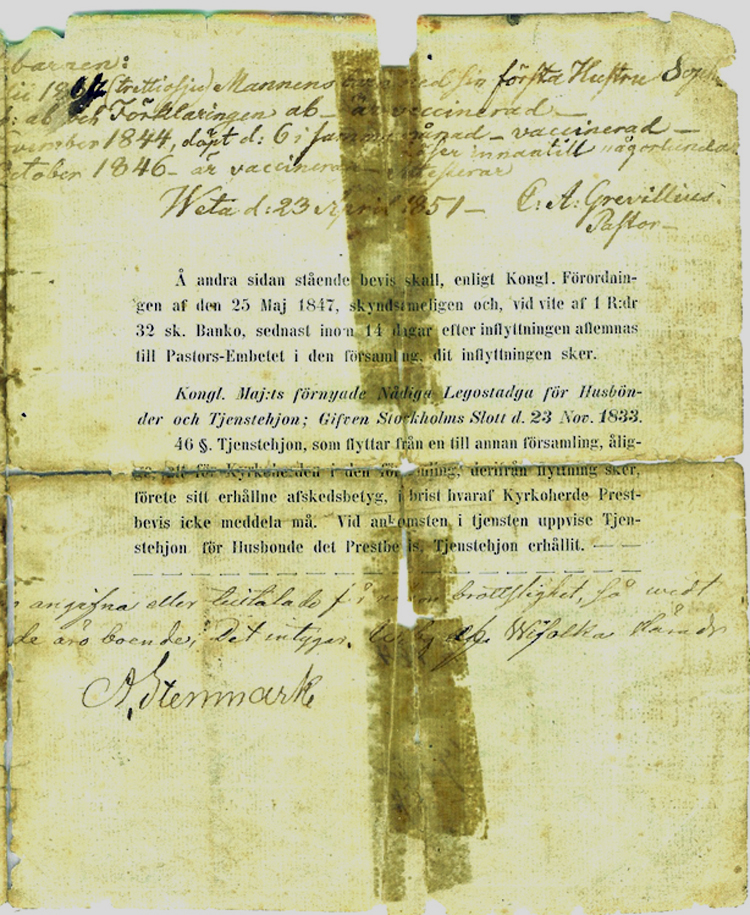 barnen:
18 (trettiosju) Mannens med sin första Hustru Soph
ab och Förklaringen ab - är vaccinerad -
vember 1844, döpt d: 6 i samma månad - vaccinerad -
ctober 1846 - är vaccinerad läser innantill någorlunda
Weta d: 23 April 1851 - C: A: Grevillius.
Pastor -
Å andra sidan stående bevis skall, enligt Kongl. Förordnin-
gen af den 25 Maj 1847, skyndsmeligen och, vid vite af 1 R:dr
32 sk. Banko, sednast inom 14 dagar efter inflyttningen aflemnas
till Pastors-Embetet i den församling, dit inflyttningen sker.
Kongl. Maj:ts förnyade Nådiga Legostadga för Husbön-
der och Tjenstehjon; Gifven Stockholms Slott d. 23 Nov. 1833.
46 §. Tjenstehjon, som flyttar från en till annan församling, ålig-
ge, att för Kyrkoherden i den församling, derifrån flyttning sker,
förete sitt erhållne afskedsbetyg, i brist hvaraf Kyrkoherde Prest-
bevis icke meddela må. Vid ankomsten i tjensten uppvise Tjen-
stehjon för Husbonde det Prestbevis, Tjenstehjon erhållit. -
angifna eller tilltalade för brottslighet, så wedt
de äro boende; Det intygar. Wifolka Härad
A. Stenmark